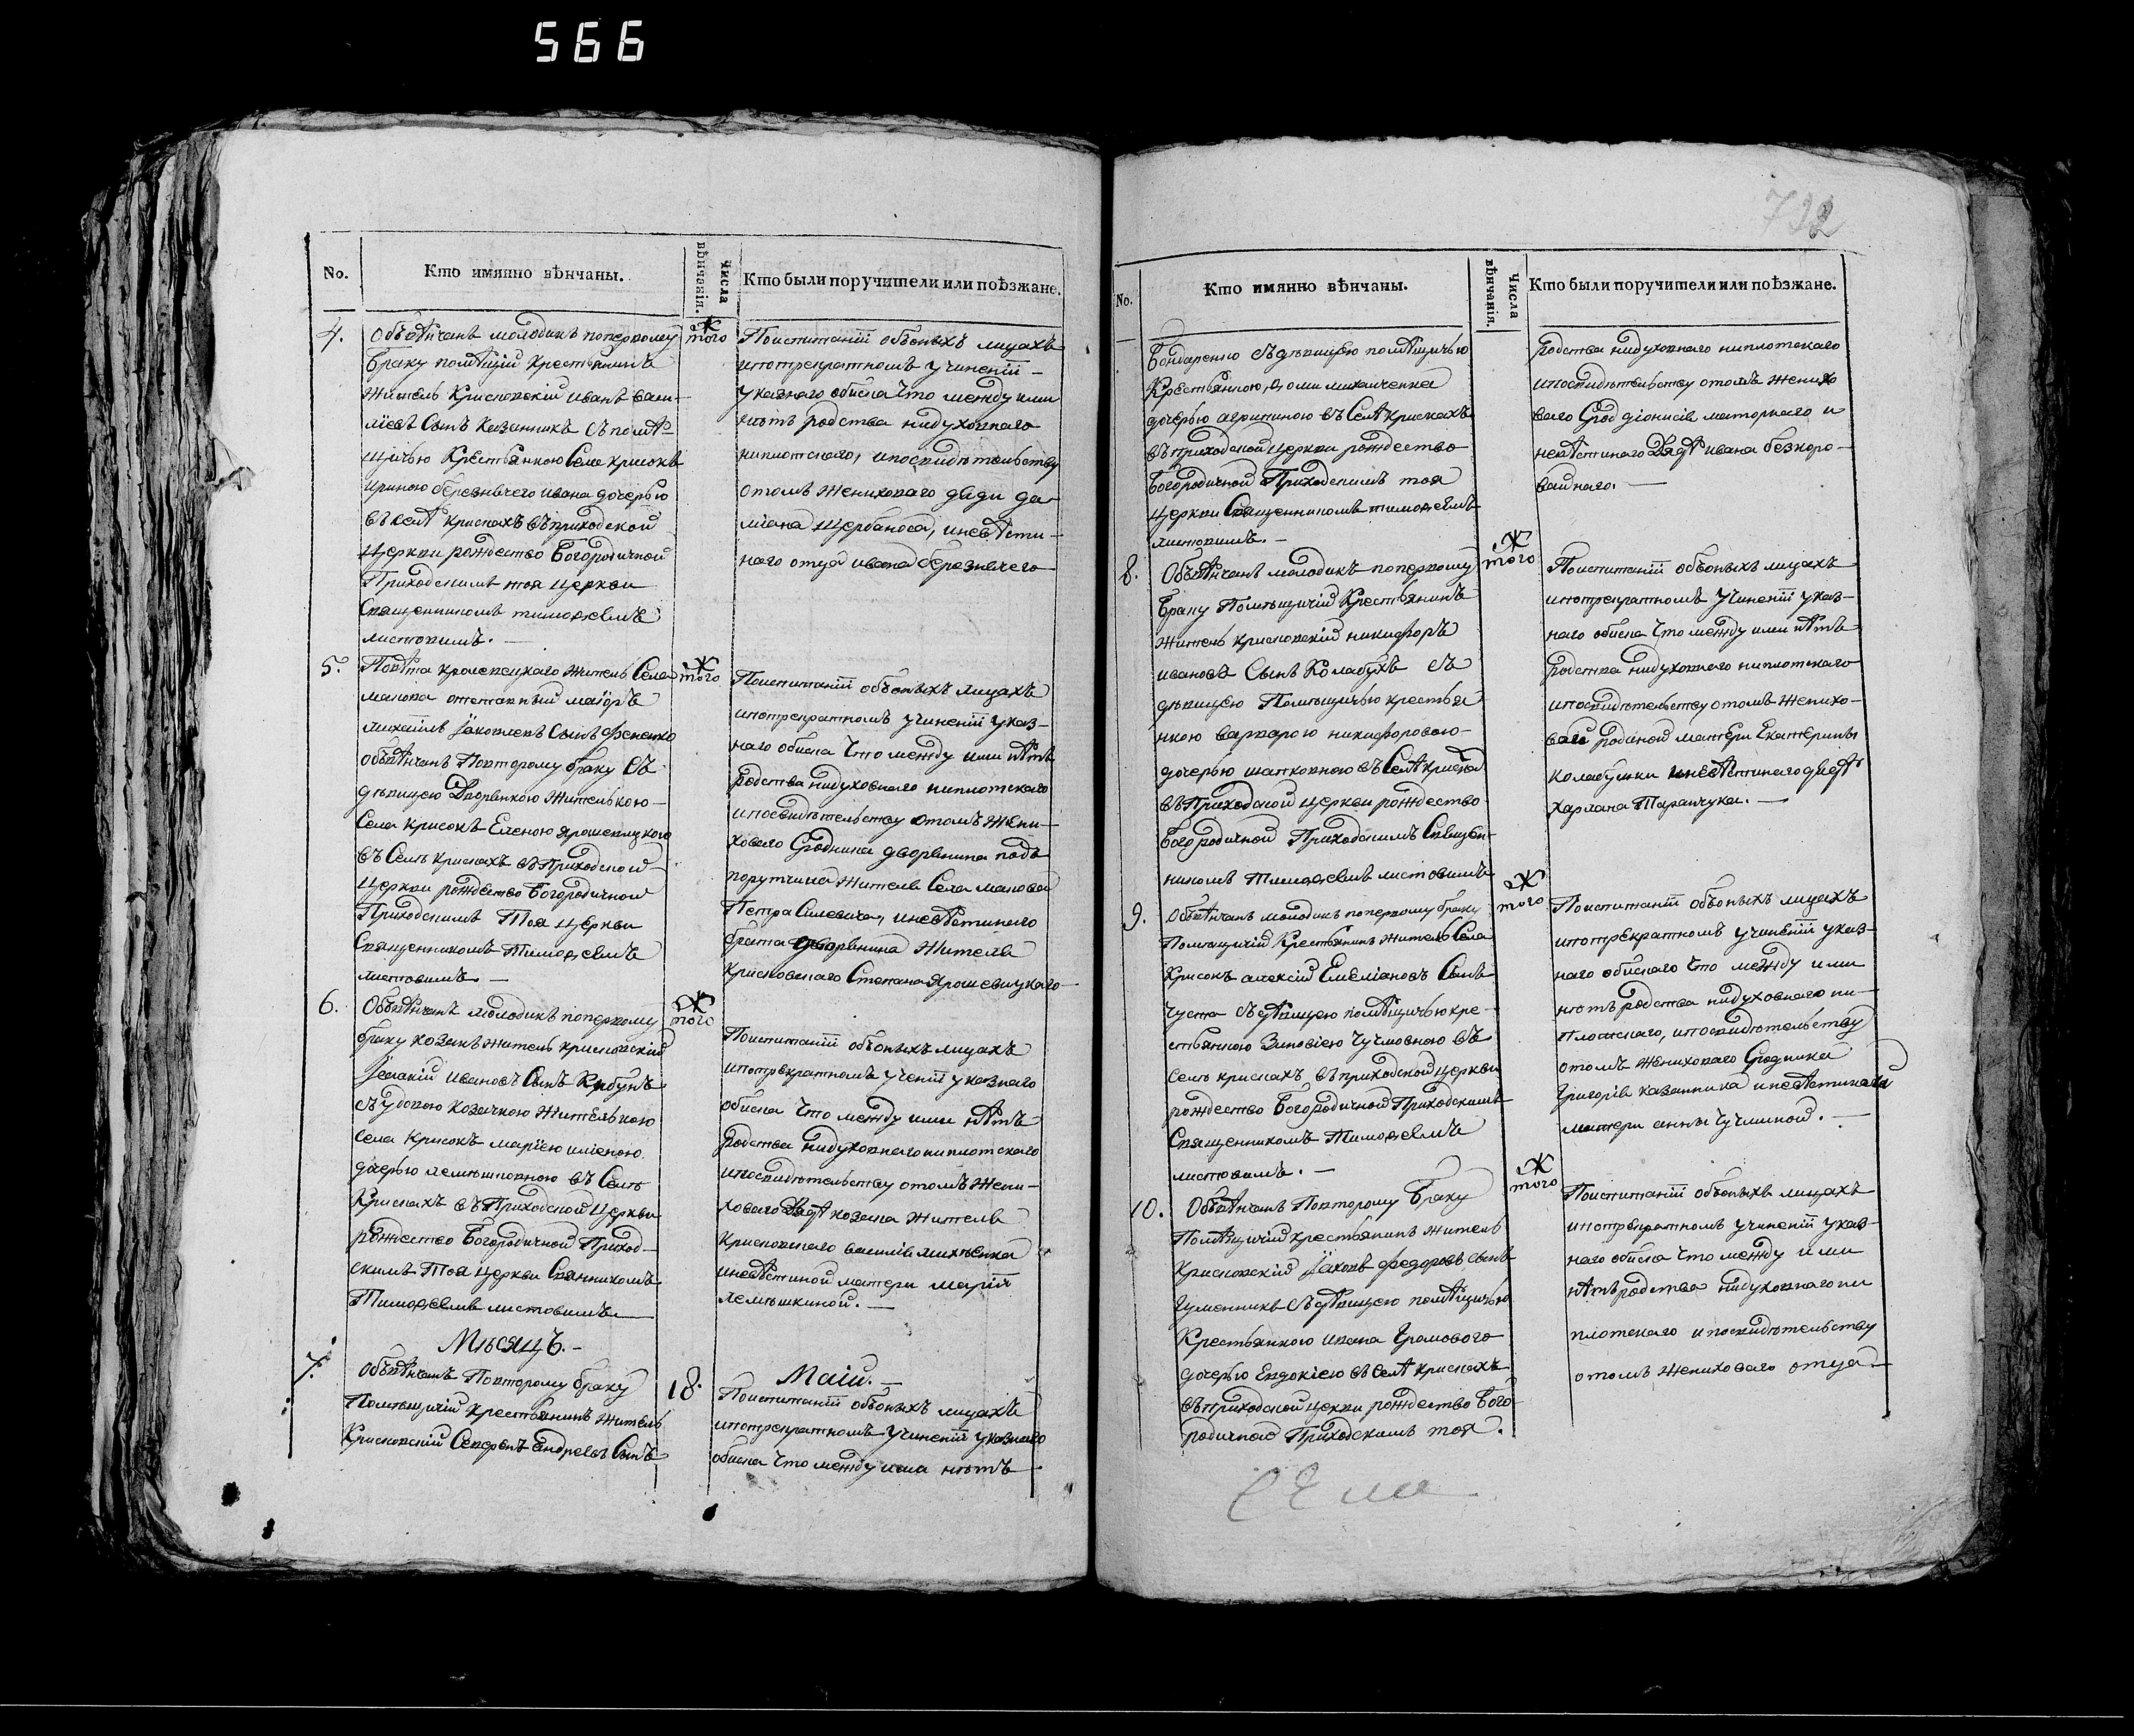 566
732
No.
Кто имянно вѣнчаны.
Числа вѣнчанія.
Кто были поручители или поѣзжане.
4.
Обвѣнчанъ молодикъ попервому
браку помѣщій крестьянинъ
житель Крисковскій иванъ васи-
ліевъ Сынъ Казанникъ съ помѣ-
щичью Крестьянкою Села крисокъ
ириною березнвчего ивана дочерью
въ селѣ крискахъ въ приходской
церкви рождество Богородичной
Приходскимъ тоя церкви
Священникомъ тимоѳеемъ
листовимъ. —
того
Поиспитаніи обѣоныхъ лицахъ
ипотрекратномъ учиненіи —
указнаго обиска что между ими
нѣтъ родства нидуховнаго
ниплотскаго, ипосвидѣтельству
отомъ жениховаго дяди да-
міана щербаноса, иневѣсти-
наго отца ивана березнвчего
5.
Повѣта кролевецкаго житель Села
макова отставный маіоръ
михаилъ Яковлевъ Сынъ Фененко
обвѣнчанъ Повторому браку Съ
дѣвицею Дворянкою жителькою —
Села Крисокъ Еленою ярошевицкою
въ Селѣ крискахъ въ Приходской
Церкви рождество Богородичной
Приходскимъ Тоя Церкви
Священникомъ Тимоѳеемъ
листовимъ —
того
Поиспитаніи обѣоныхъ лицахъ
ипотрекратномъ учиненіи указ-
наго обиска Что между ими нѣтъ
родства нидуховнаго ниплотскаго
ипосвидѣтельству отомъ жени-
ховаго Сродника дворянина подъ
порутчика жителя Села макова
Петра Силевича, иневѣстинаго
брата дворянина Жителя
крисковскаго Степана Ярошевицкаго
6.
Обвѣнчанъ молодикъ попервому
браку козакъ житель крисковскій
иванов Сынъ
съ удовою козачкою Жителькою
села Крисокъ маріею
дочерью лемешковною въ Селѣ
Крискахъ въ Приходской Церкви
рождество Богородичной Приход-
скимъ Тоя церкви Священникомъ
Тимоѳеемъ листовимъ
того
Поиспитаніи обѣоныхъ лицахъ
ипотрекратномъ учненіи указнаго
обиска Что между ими нѣтъ
родства нидуховнаго ниплотскаго
ипосвидѣтельству отомъ жени-
ховаго Дядѣ козака жителя
Крисковскаго василія михѣенка
иневѣстиной матери маріи
лемешкиной. —
Мѣсяцъ. —
Маій. —
7.
Обвѣнчанъ Повторому браку
Помѣщичій крестьянинъ житель
Крисковскій Северіянъ андреевъ Сынъ
18.
Поиспитаніи обѣоныхъ лицахъ
ипотрекратномъ учиненіи указнаго
обиска Что между ими нѣтъ
No.
Кто имянно вѣнчаны.
Числа вѣнчанія.
Кто были поручители или поѣзжане.
Бондаренко съ дѣвицею помѣщичью
Крестьянкою, ѳоми михаиченка
дочерью агрипиною въ Селѣ крискахъ
въ приходской церкви рождество
Богородичной Приходскимъ тоя
Церкви Священникомъ тимоѳеемъ
листовимъ. —
родства нидуховнаго ниплотскаго
ипосвидѣтельству отомъ женихо
ваго Срод діонисія маторнаго и
невѣстинаго Дядѣ ивана безкоро-
вайнаго. —
8.
Обвѣнчанъ молодикъ поперкому
браку Помѣщичій Крестьянинъ
житель крисковскій никифоръ
ивановъ Сынъ Колабухъ Съ
дѣвицею Помѣщичью крестья
нкою варварою никифоровою —
дочерью шапковною въ Селѣ крискахъ
въ Приходской церкви рождество
Богородичной Приходскимъ Священ-
никомъ Тимоѳеемъ листовимъ
того
Поиспитаніи обѣоныхъ лицахъ
ипотрекратномъ учиненіи указ-
наго обиска Что между ими нѣтъ
родства нидуховнаго ниплотскаго
ипосвидѣтельству отомъ женихо-
ваго родной матери Екатерины
колабушки иневѣстинаго дядѣ
харлана Таранчука. —
9.
Обвѣнчанъ молодикъ поперкому браку
Помѣщичій Крестьянинъ житель Села
Крисокъ алексій Емеліановъ Сынъ
Чуста Съ дѣвицею помѣщичью кре-
стьянкою Зиновіею Чучмовною въ
селѣ крискахъ въ приходской церкви
рождество Богородичной Приходскимъ
Священникомъ Тимоѳеемъ
листовимъ. —
того
Поиспитаніи обѣоныхъ лицахъ
ипотрекратномъ учиненіи указ-
наго обискаго Что между ими
нѣтъ родства нидуховнаго ни-
плотскаго, ипосвидѣтельству
отомъ жениховаго Сродника
Григорія казанника иневѣстиной
матери анны Чучминой. —
10.
Обвѣнчанъ Повторому Браку
Помѣщичій крестьянинъ житель
крисковскій Яковъ федоровъ сынъ
Гуменникъ Съ дѣвицею помѣщичью
Крестьянкою ивана Громового
дочерью Евдокіею въ селѣ крискахъ
въ приходской церкви рождество Бого-
родичной Приходскимъ тоя.
того
Поиспитаніи обѣоныхъ лицахъ
ипотрекратномъ учиненіи указ-
наго обиска Что между ими
нѣтъ родства нидуховнаго ни
плотскаго ипосвидѣтельству
отомъ жениховаго отца —